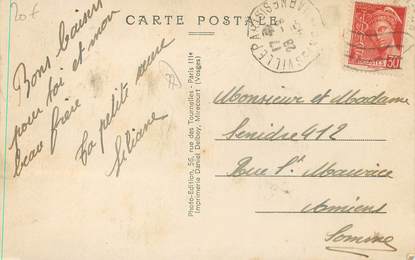 20f
CARTE POSTALE
Bons baisers
pour toi et mon
beau frère
ta petite sœur
Liliane
Photo-Edition, 56, rue des Tournelles - Paris IIIe
Imprimerie Daniel Delboy, Mirecourt (Vosges)
Monsieur et Madame
412
Rue St Maurice
Amiens
Somme